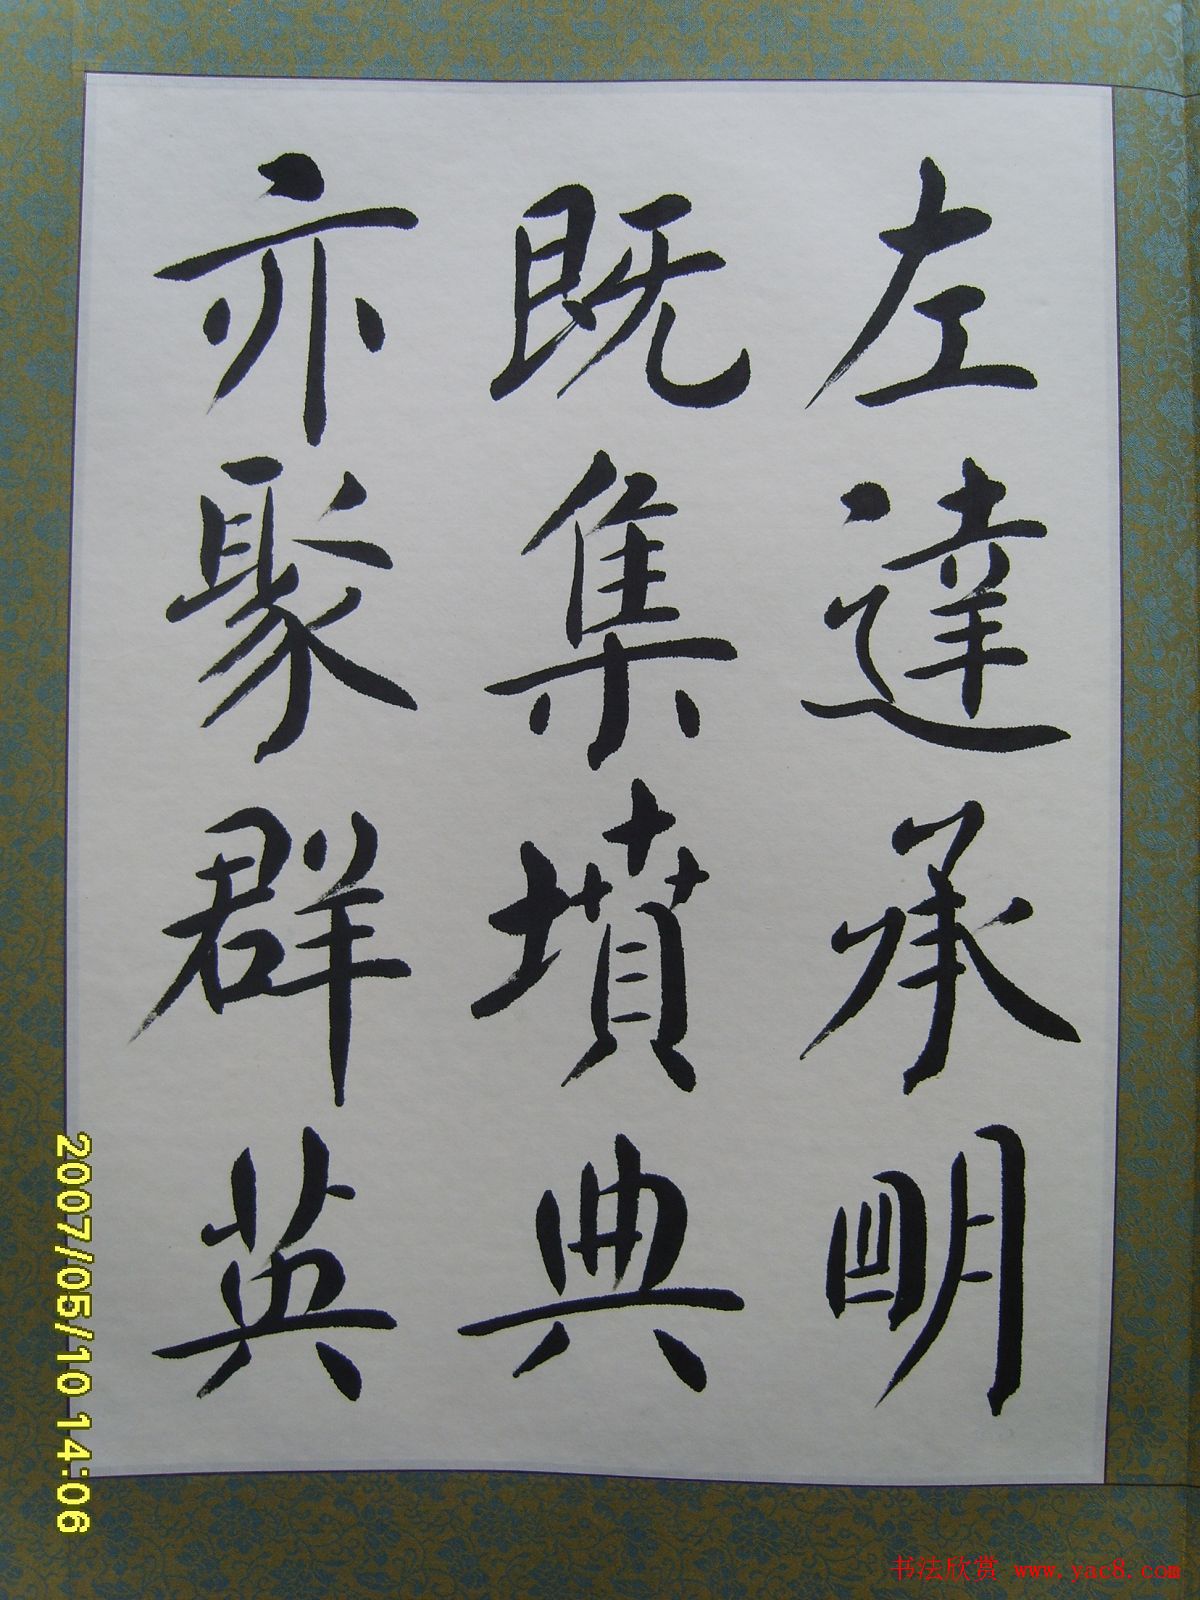 左達承明
既集墳典
亦聚群英
2007/05/10 14:06
书法欣赏 www.yac8.com